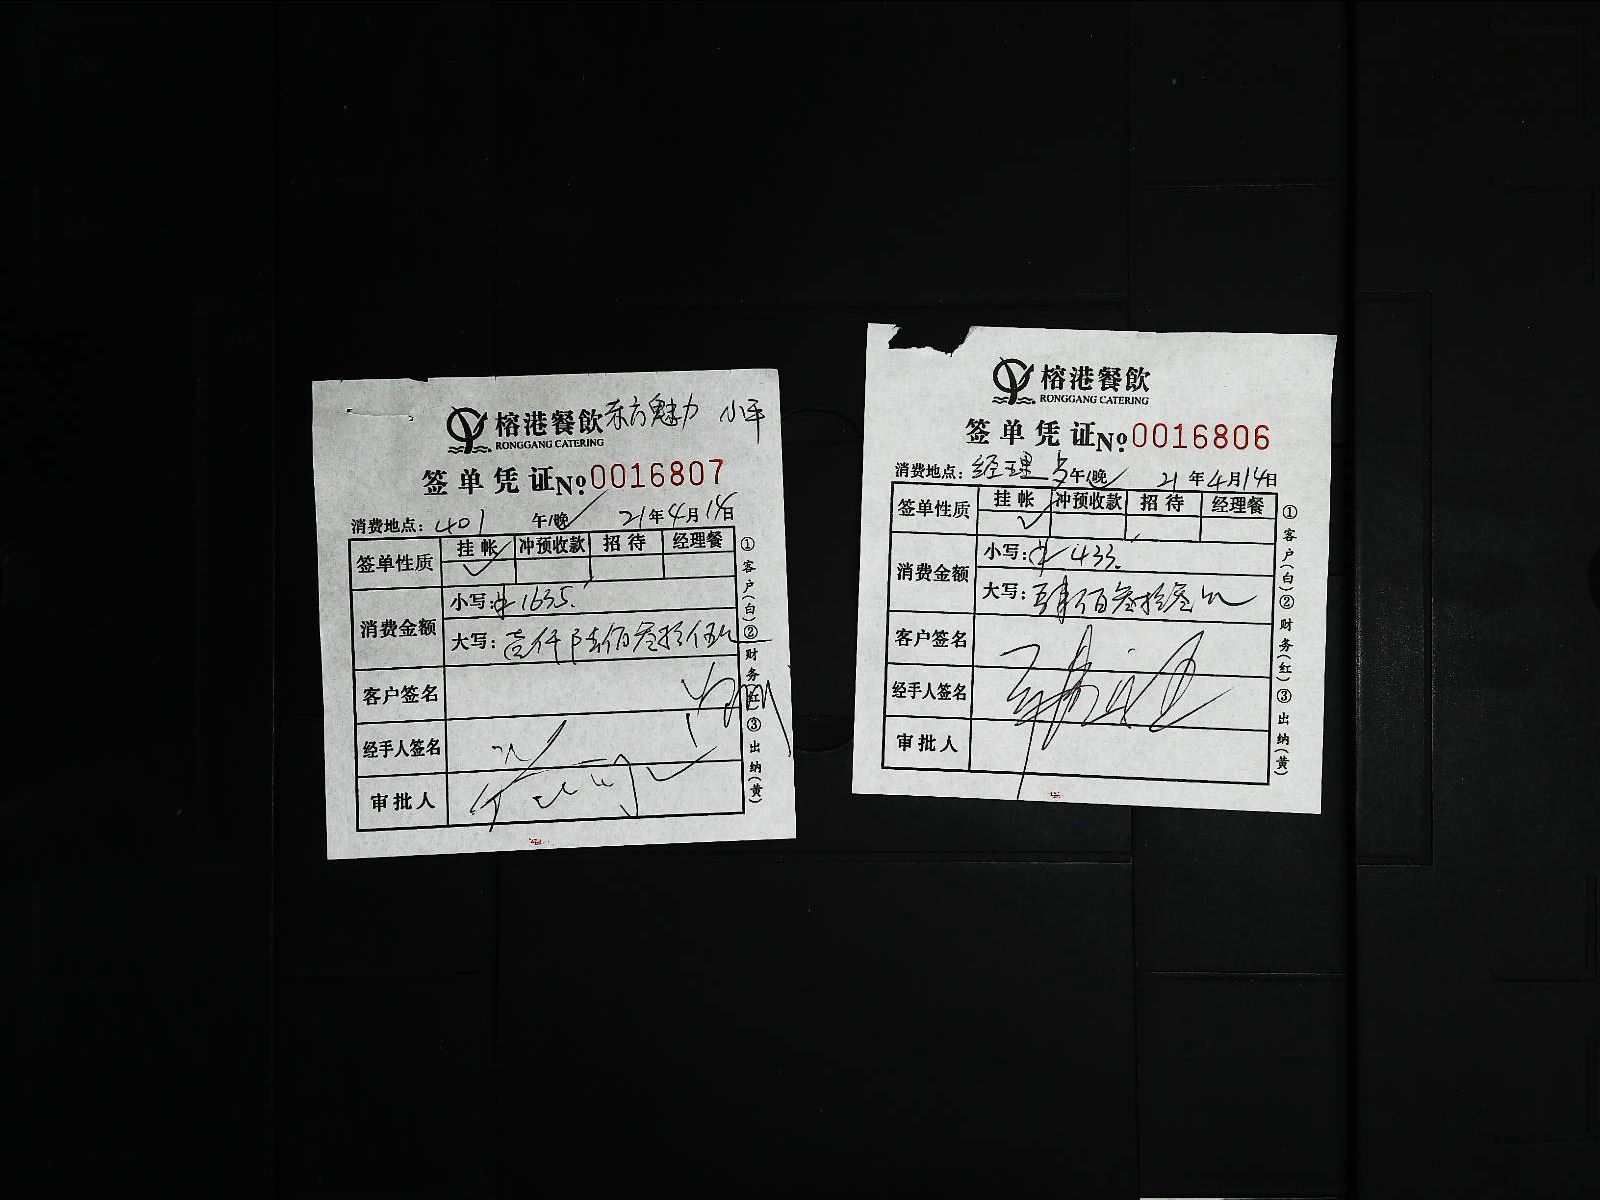 榕港餐飲 东方魅力 小平
RONGGANG CATERING
签单凭证 №0016807
消费地点：401 午/晚 21年4月14日
签单性质 挂帐 冲预收款 招待 经理餐
消费金额
小写：¥1635.
大写：壹仟陆佰叁拾伍元
客户签名
经手人签名
审批人
①客户(白)②财务(红)③出纳(黄)
榕港餐飲
RONGGANG CATERING
签单凭证 №0016806
消费地点：经理 午/晚 21年4月14日
签单性质 挂帐 冲预收款 招待 经理餐
消费金额
小写：¥433.
大写：肆佰叁拾叁元
客户签名
经手人签名
审批人
①客户(白)②财务(红)③出纳(黄)